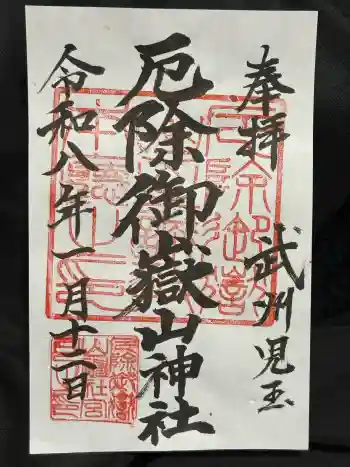 奉拝
武州児玉
厄除御嶽山神社
令和八年一月十二日